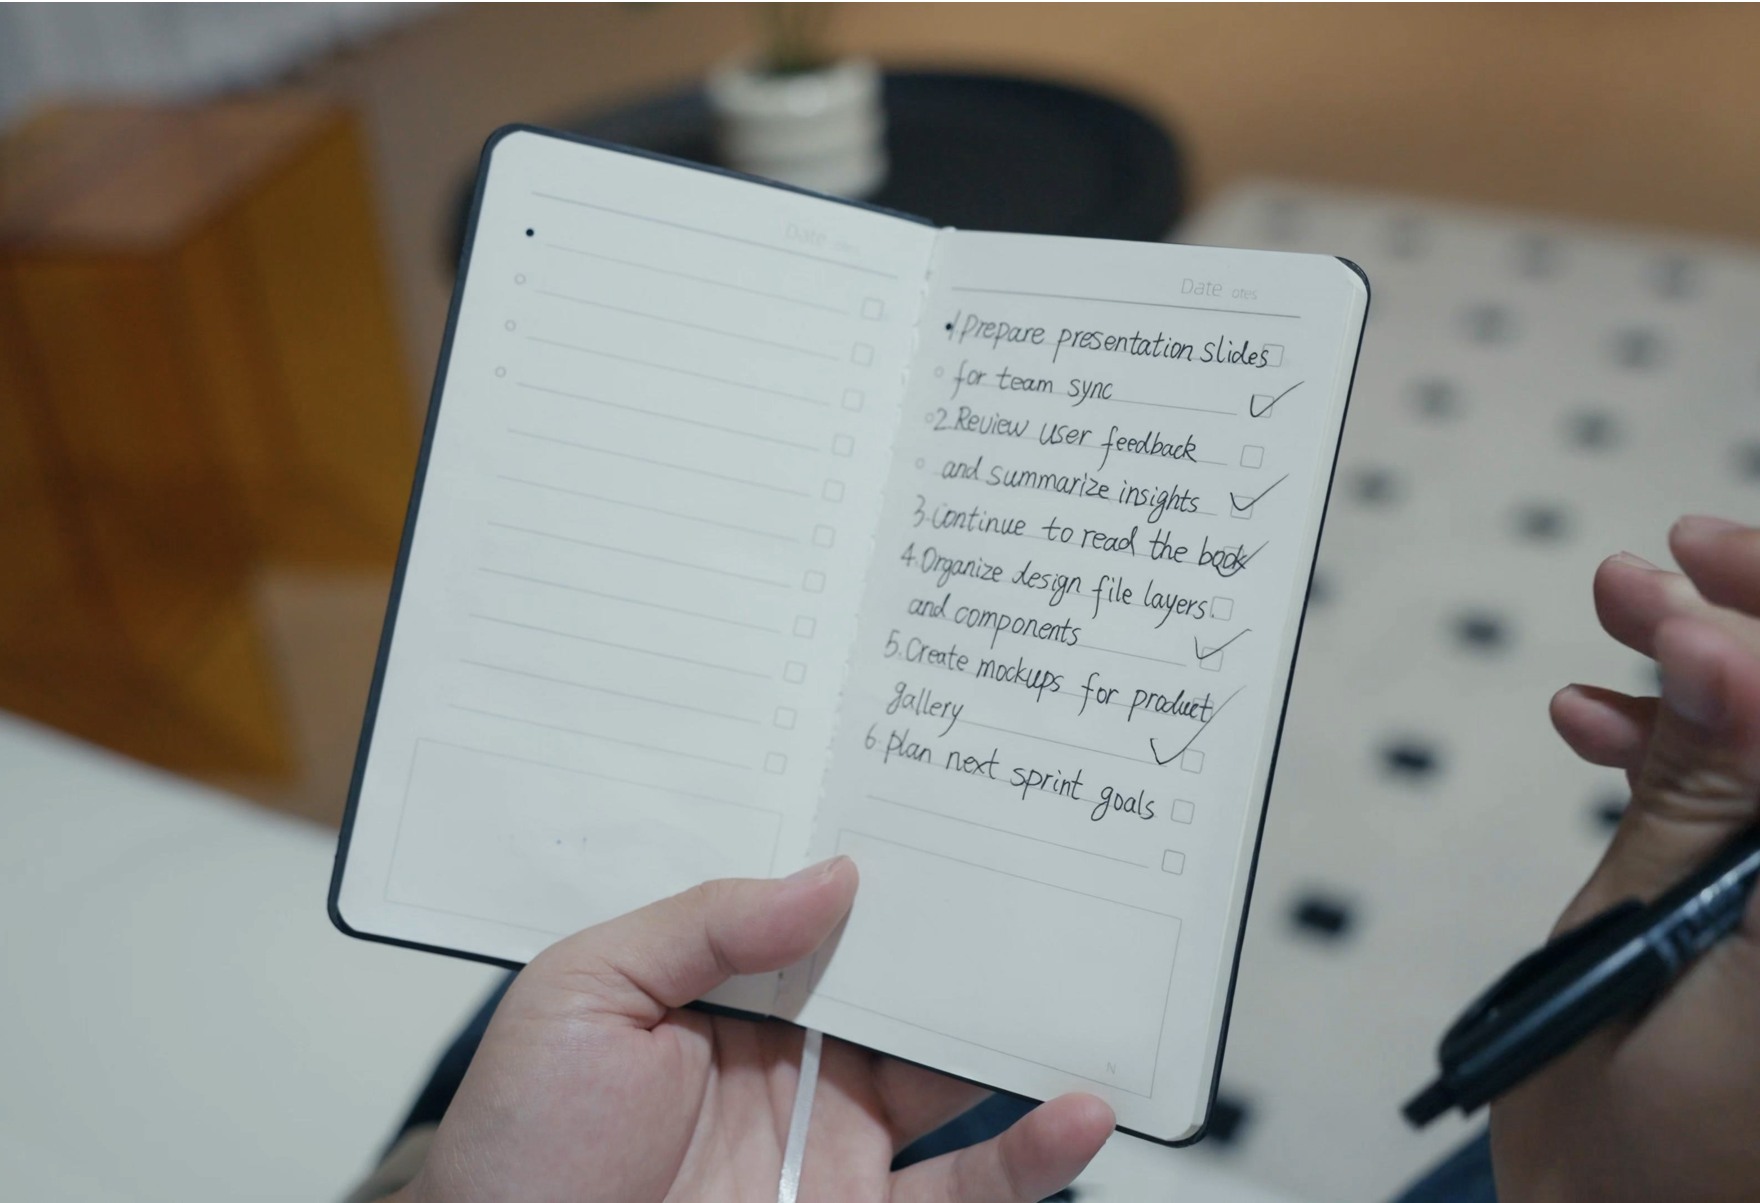 Date
Date otes
1 Prepare presentation slides
for team sync
2 Review user feedback
and summarize insights
3. Continue to read the book
4. Organize design file layers.
and components
5. Create mockups for product
gallery
6 plan next sprint goals
N